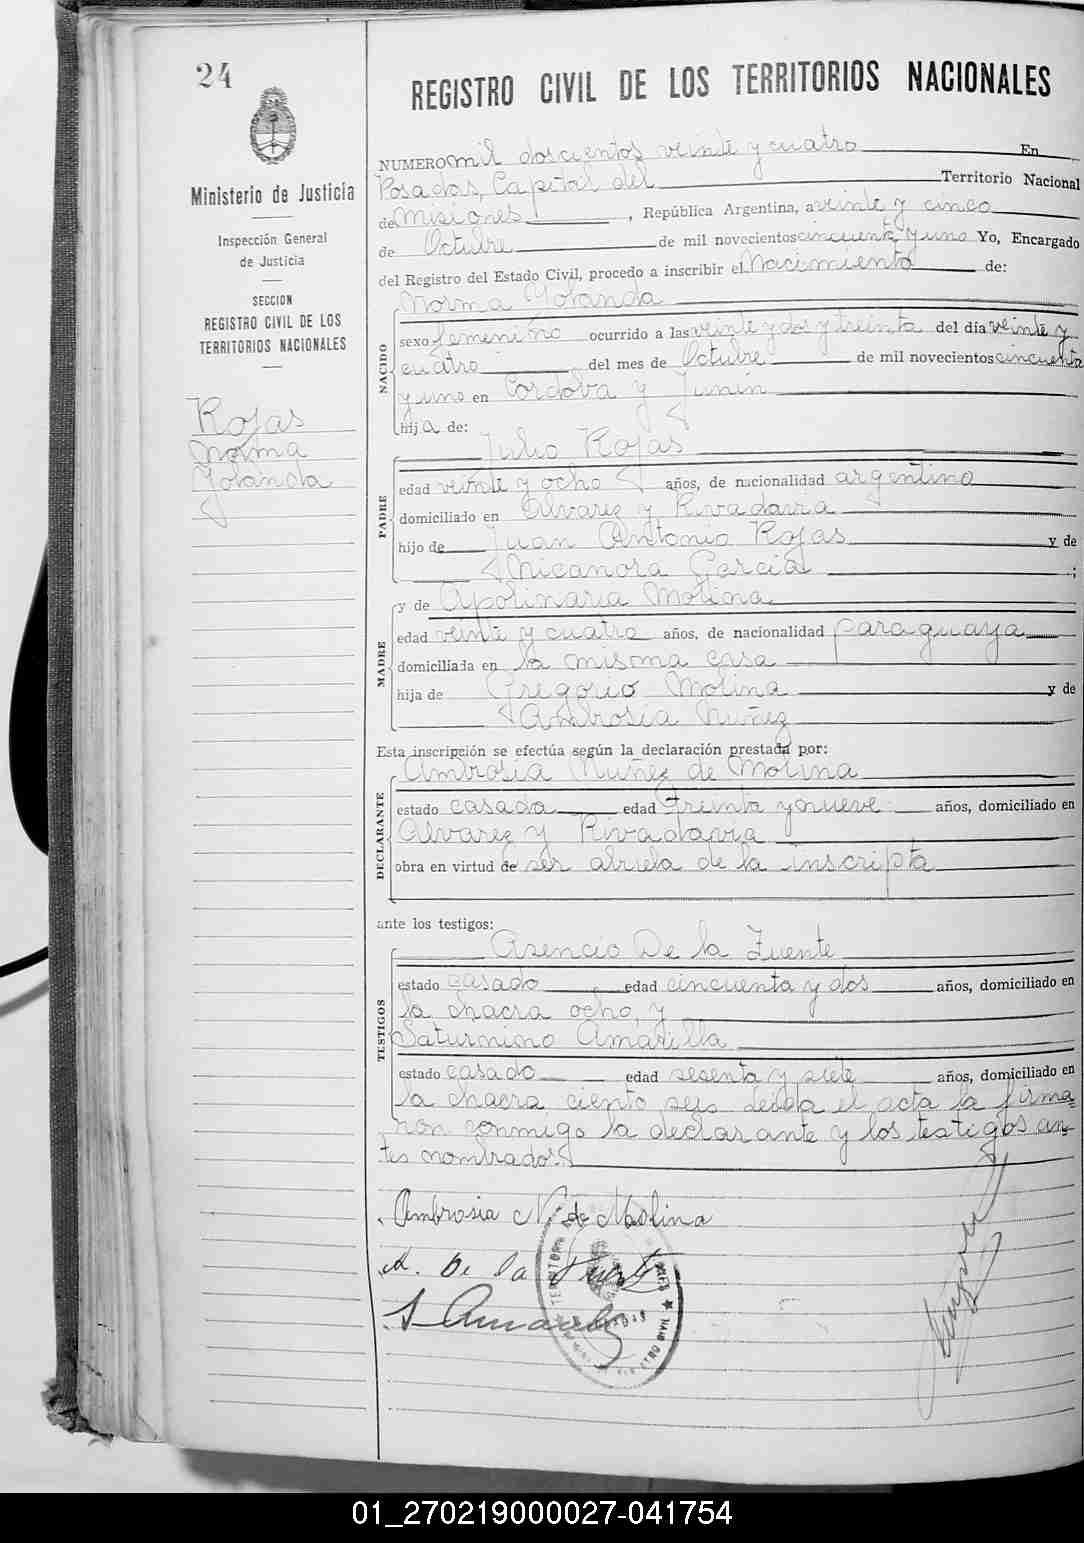 24
Ministerio de Justicia
Inspección General
de Justicia
SECCION
REGISTRO CIVIL DE LOS
TERRITORIOS NACIONALES
Rojas
Norma
Yolanda
REGISTRO CIVIL DE LOS TERRITORIOS NACIONALES
NUMERO mil doscientos veinte y cuatro En
Posadas, Capital del Territorio Nacional
de Misiones, República Argentina, a veinte y cinco
de Octubre de mil novecientos cincuenta y uno Yo, Encargado
del Registro del Estado Civil, procedo a inscribir el Nacimiento de:
NACIDO
Norma Yolanda
sexo femenino ocurrido a las veinte y dos y treinta del día veinte y
cuatro del mes de Octubre de mil novecientos cincuenta
y uno en Cordova y Junin
hija de:
PADRE
Julio Rojas
edad veinte y ocho años, de nacionalidad argentino
domiciliado en Alvarez y Rivadavia
hijo de Juan Antonio Rojas y de
Nicanora Garcia ;
MADRE
y de Apolinaria Molina
edad veinte y cuatro años, de nacionalidad paraguaya
domiciliada en la misma casa
hija de Gregorio Molina y de
Ambrosia Nuñez
Esta inscripción se efectúa según la declaración prestada por:
DECLARANTE
Ambrosia Nuñez de Molina
estado casada edad treinta y nueve años, domiciliado en
Alvarez y Rivadavia
obra en virtud de ser abuela de la inscripta
ante los testigos:
TESTIGOS
Asencio De la Fuente
estado casado edad cincuenta y dos años, domiciliado en
la chacra ocho, y
Saturnino Amarilla
estado casado edad sesenta y siete años, domiciliado en
la chacra ciento seis leida el acta la firma=
ron conmigo la declarante y los testigos an-
tes nombrados.
Ambrosia N. de Molina
A. De la Fuente
S Amarilla
REGISTRO CIVIL
01_270219000027-041754